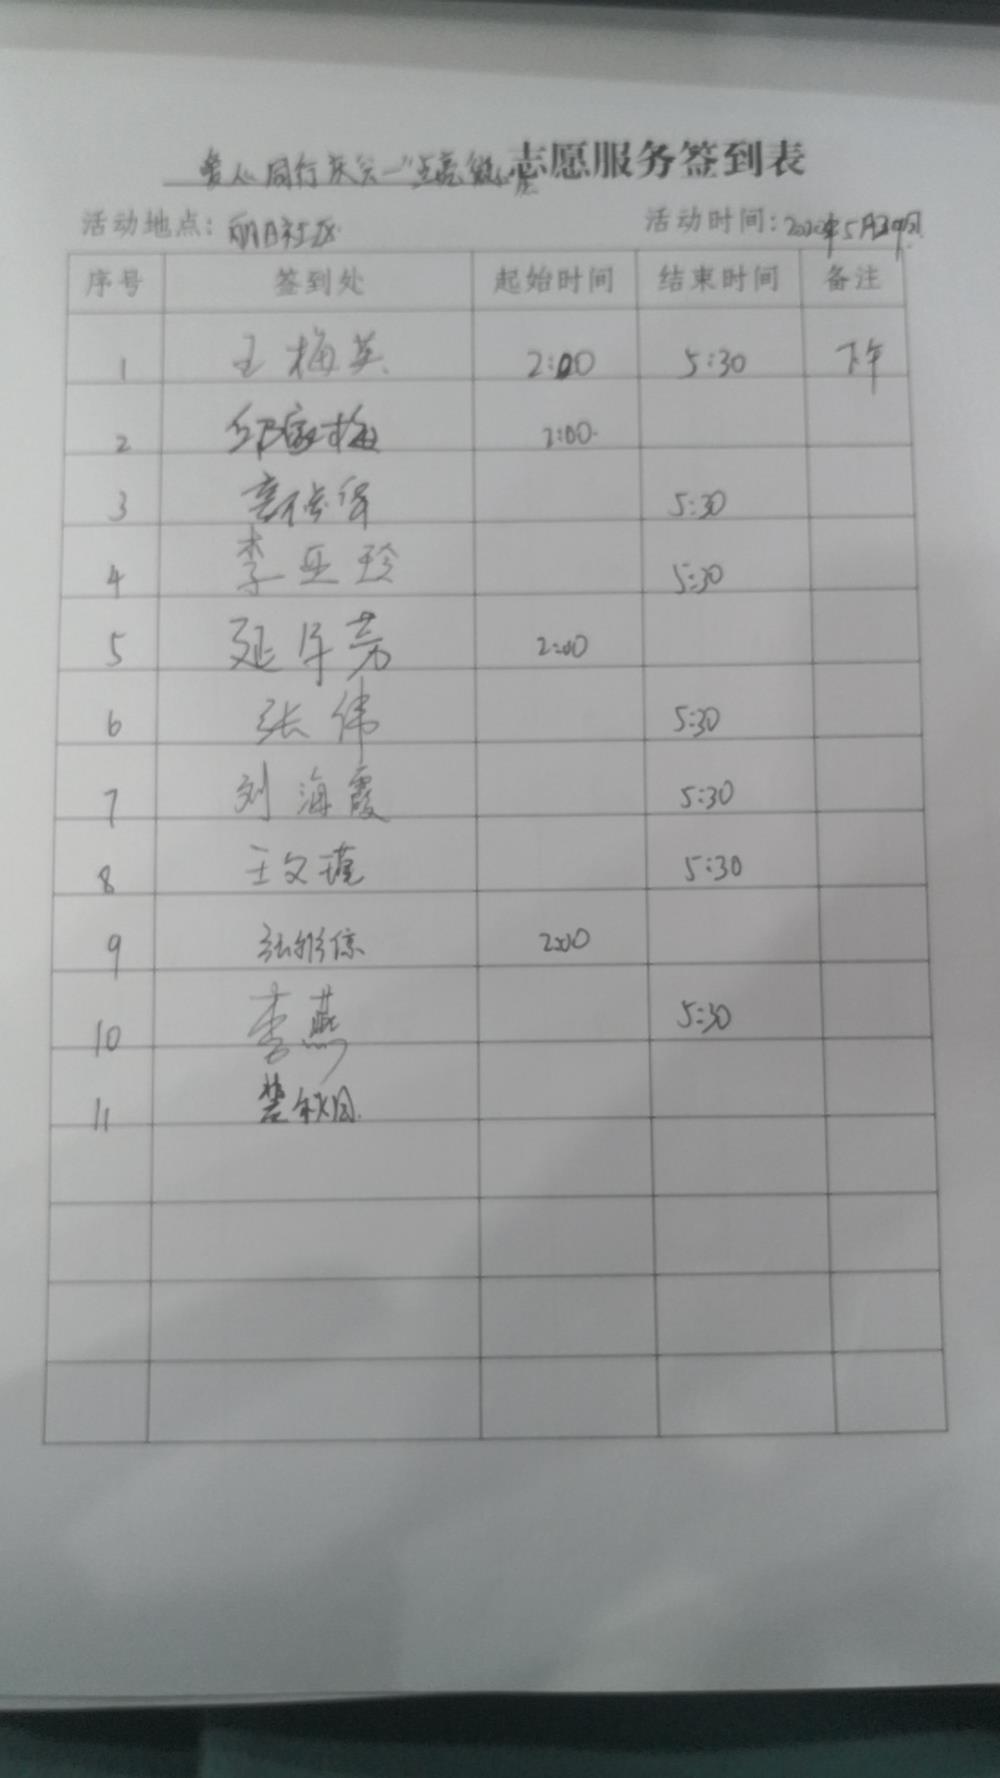 志愿服务签到表
活动地点: 丽日社区 活动时间: 2020年5月30日
序号 签到处 起始时间 结束时间 备注
1 王梅英 2:00 5:30 下午
2 邱家梅 2:00
3 5:30
4 李亚玲 5:30
5 延军芳 2:00
6 张伟 5:30
7 刘海霞 5:30
8 王文瑾 5:30
9 2:00
10 李燕 5:30
11